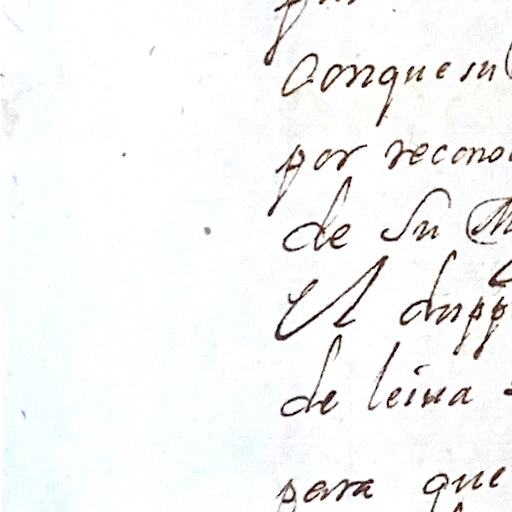 Conque su
por recono
de Su M
El dupp
de leiua
para que